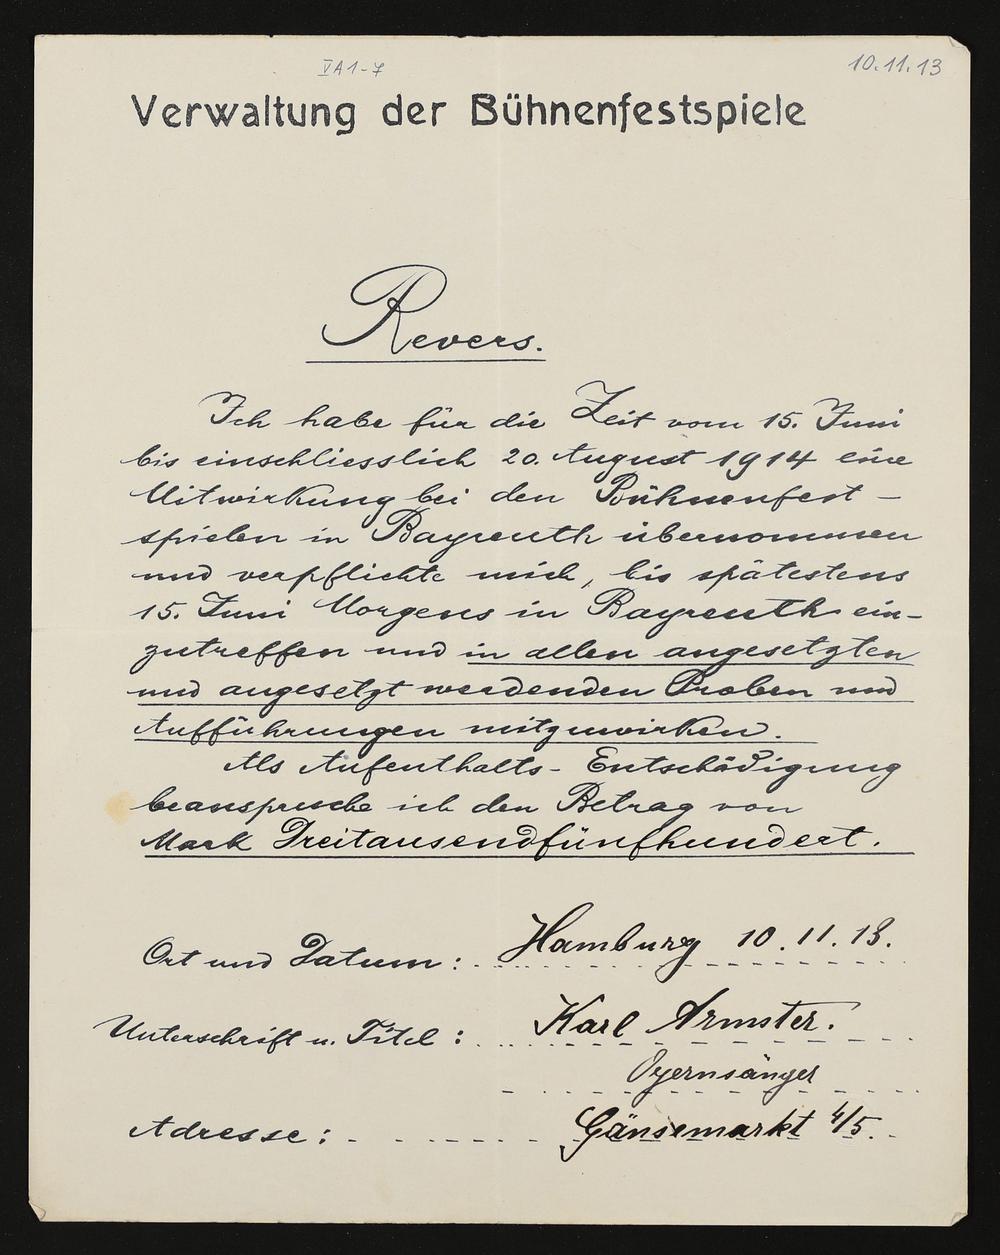 VA1-7
10.11.13
Verwaltung der Bühnenfestspiele
Revers.
Ich habe für die Zeit vom 15. Juni
bis einschliesslich 20. August 1914 eine
Mitwirkung bei den Bühnenfest-
spielen in Bayreuth übernommen
und verpflichte mich, bis spätestens
15. Juni Morgens in Bayreuth ein-
zutreffen und in allen angesetzten
und angesetzt werdenden Proben und
Aufführungen mitzuwirken.
Als Aufenthalts-Entschädigung
beanspruche ich den Betrag von
Mark Dreitausendfünfhundert.
Ort und Datum: Hamburg 10.11.13.
Unterschrift u. Titel: Karl Armster.
Opernsänger
Adresse: Gänsemarkt 4/5.